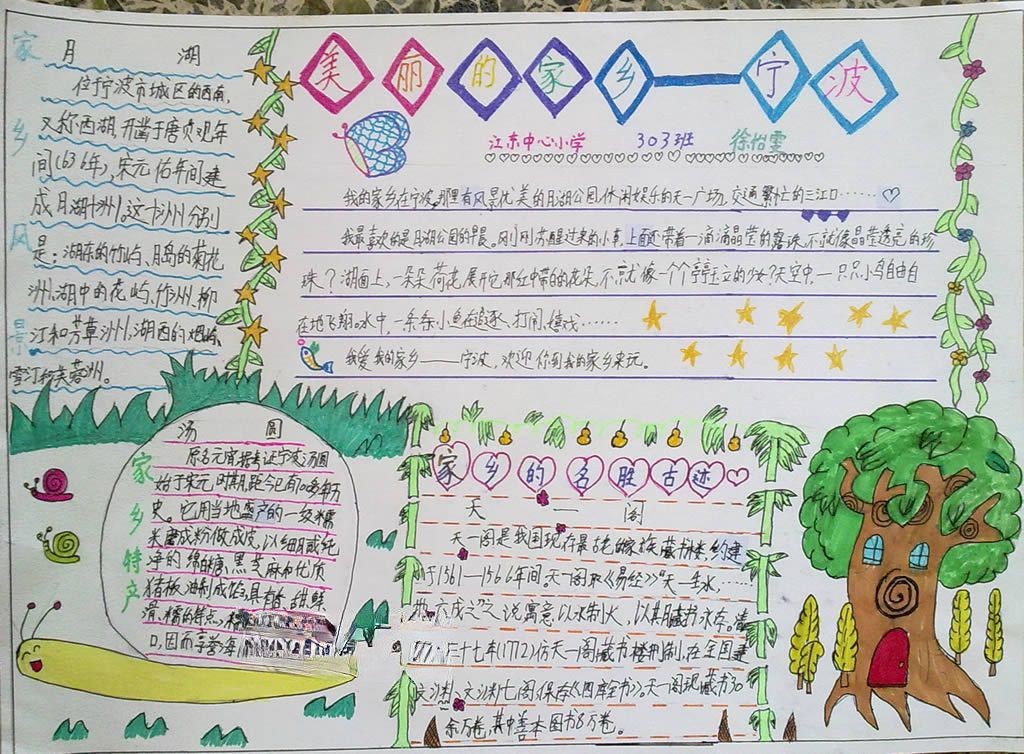 美丽的家乡——宁波
江东中心小学 303班 徐怡雯
家乡风景
月湖
位于宁波市城区的西南,
又称西湖,开凿于唐贞观年
间(636年),宋元佑年间建
成月湖十洲。这十洲分别
是:湖东的竹屿、月岛的菊花
洲,湖中的花屿、竹洲、柳
汀和芳草洲,湖西的烟屿、
雪汀和芙蓉洲。
我的家乡在宁波,那里有风景优美的月湖公园,休闲娱乐的天一广场,交通繁忙的三江口……
我最喜欢的是月湖公园的早晨,刚刚苏醒过来的小草,上面还带着一滴滴晶莹的露珠,不就像晶莹透亮的珍
珠?湖面上,一朵朵荷花,展开它那红中带白的花朵,不就像一个个亭亭玉立的少女?天空中,一只只小鸟自由自
在地飞翔。水中,一条条小鱼在追逐、打闹、嬉戏……
我爱我的家乡——宁波,欢迎你到我的家乡来玩。
家乡特产
汤圆
原名元宵,据考证宁波汤圆
始于宋元时期,距今已有700多年历
史。它用当地盛产的一级糯
米磨成粉做成皮,以细腻纯
净的绵白糖、黑芝麻和优质
猪板油制成馅,具有香、甜、鲜、
滑、糯的特点,
口,因而享誉海
家乡的名胜古迹
天一阁
天一阁是我国现存最古老的家族藏书楼,约建
于1561—1566年间。天一阁取《易经》"天一生水,……
六成之"之说,寓意以水制火,以其藏书永存。清
三十七年(1772)仿天一阁藏书楼形制,在全国建
文渊七阁,保存《四库全书》。天一阁现藏书30
余万卷,其中善本图书8万卷。